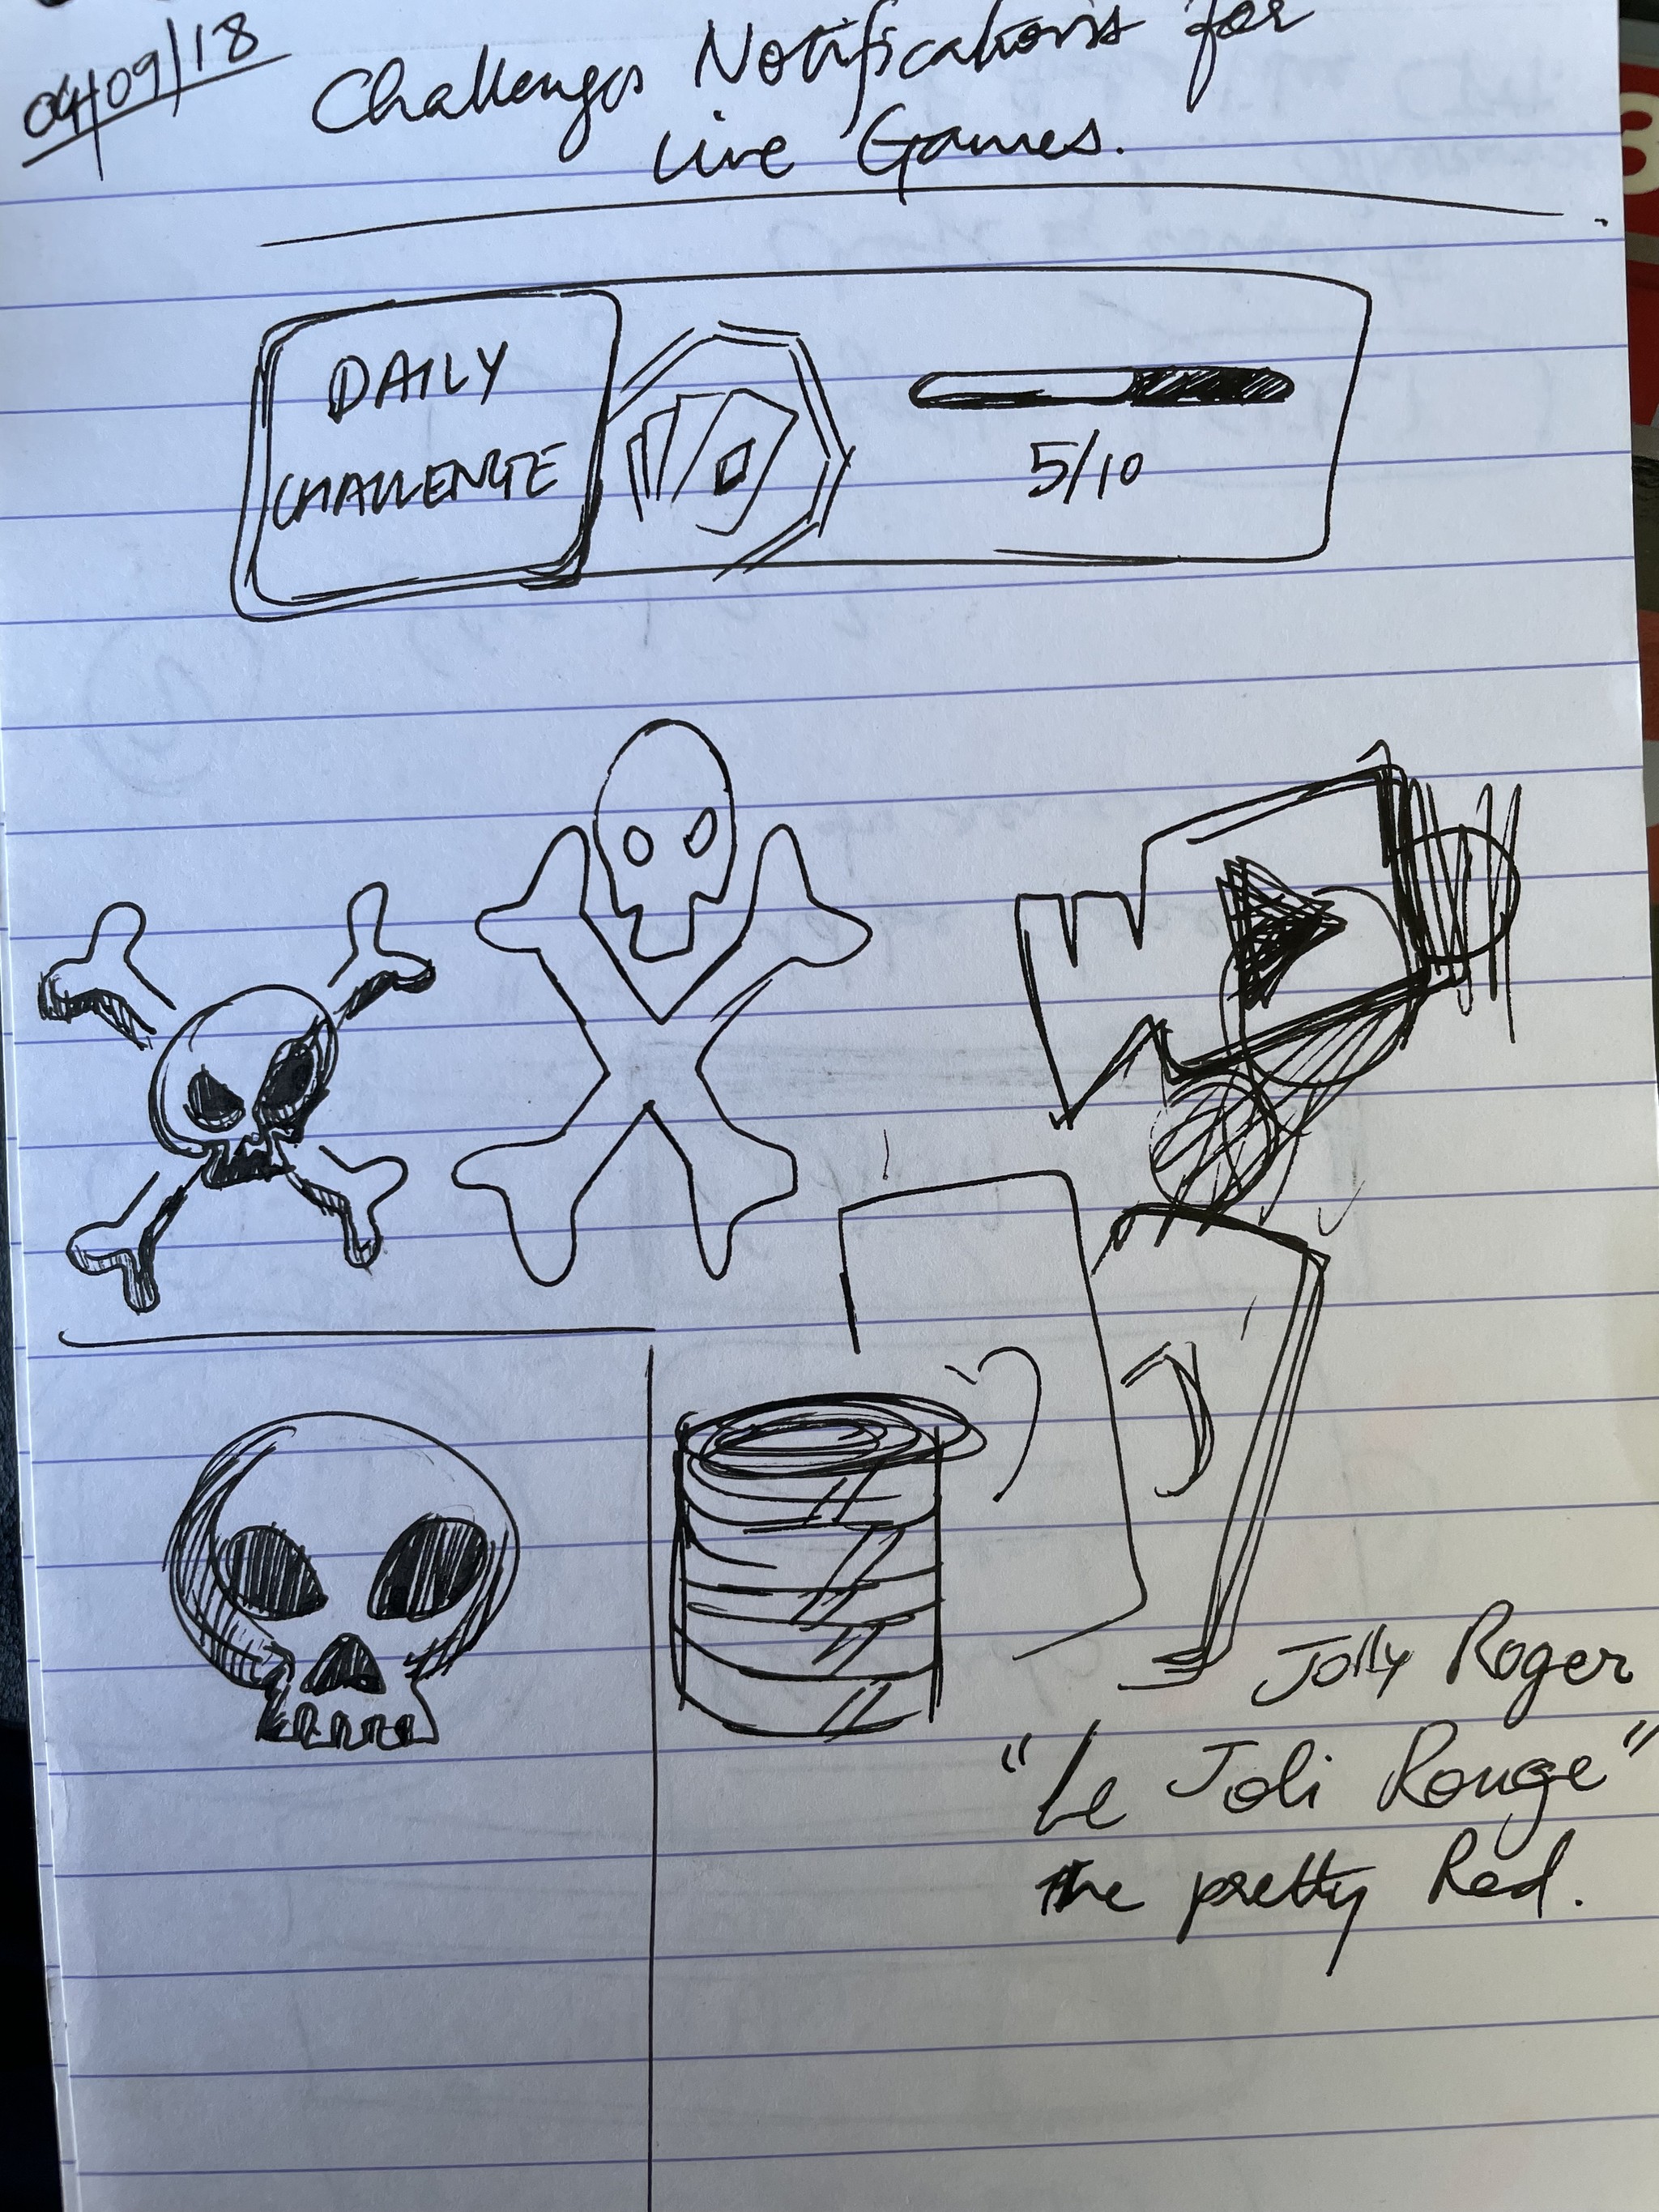 04/09/18
Challenges Notifications for
Live Games.
DAILY
CHALLENGE
5/10
Jolly Roger
"Le Joli Rouge"
the pretty Red.